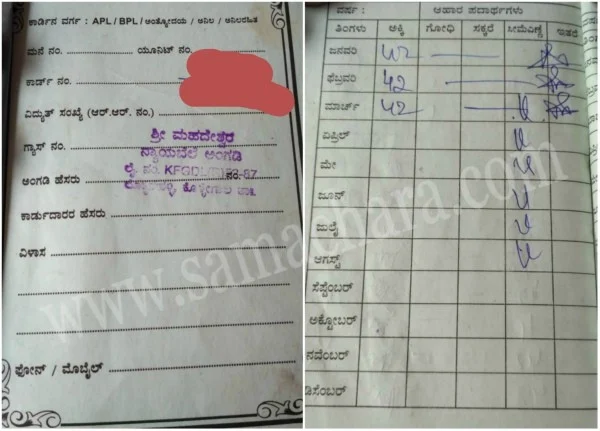 ಕಾರ್ಡಿನ ವರ್ಗ : APL / BPL / ಅಂತ್ಯೋದಯ / ಅನಿಲ / ಅನಿಲರಹಿತ
ಮನೆ ನಂ. ಯೂನಿಟ್ ನಂ.
ಕಾರ್ಡ್ ನಂ.
ವಿದ್ಯುತ್ ಸಂಖ್ಯೆ (ಆರ್.ಆರ್. ನಂ.)
ಗ್ಯಾಸ್ ನಂ.
ಶ್ರೀ ಮಹದೇಶ್ವರ
ನ್ಯಾಯಬೆಲೆ ಅಂಗಡಿ
ಲೈ. ನಂ. ನಂ.
ಅಂಗಡಿ ಹೆಸರು
ಕೊಳ್ಳೇಗಾಲ ತಾ.
ಕಾರ್ಡುದಾರರ ಹೆಸರು
ವಿಳಾಸ
ಫೋನ್ / ಮೊಬೈಲ್
www.samachara.com
ವರ್ಷ : ಆಹಾರ ಪದಾರ್ಥಗಳು
ತಿಂಗಳು ಅಕ್ಕಿ ಗೋಧಿ ಸಕ್ಕರೆ ಸೀಮೆಎಣ್ಣೆ ಇತರೆ
ಜನವರಿ 42
ಫೆಬ್ರವರಿ 42
ಮಾರ್ಚ್ 42
ಏಪ್ರಿಲ್
ಮೇ
ಜೂನ್
ಜುಲೈ
ಆಗಸ್ಟ್
ಸೆಪ್ಟೆಂಬರ್
ಅಕ್ಟೋಬರ್
ನವೆಂಬರ್
ಡಿಸೆಂಬರ್